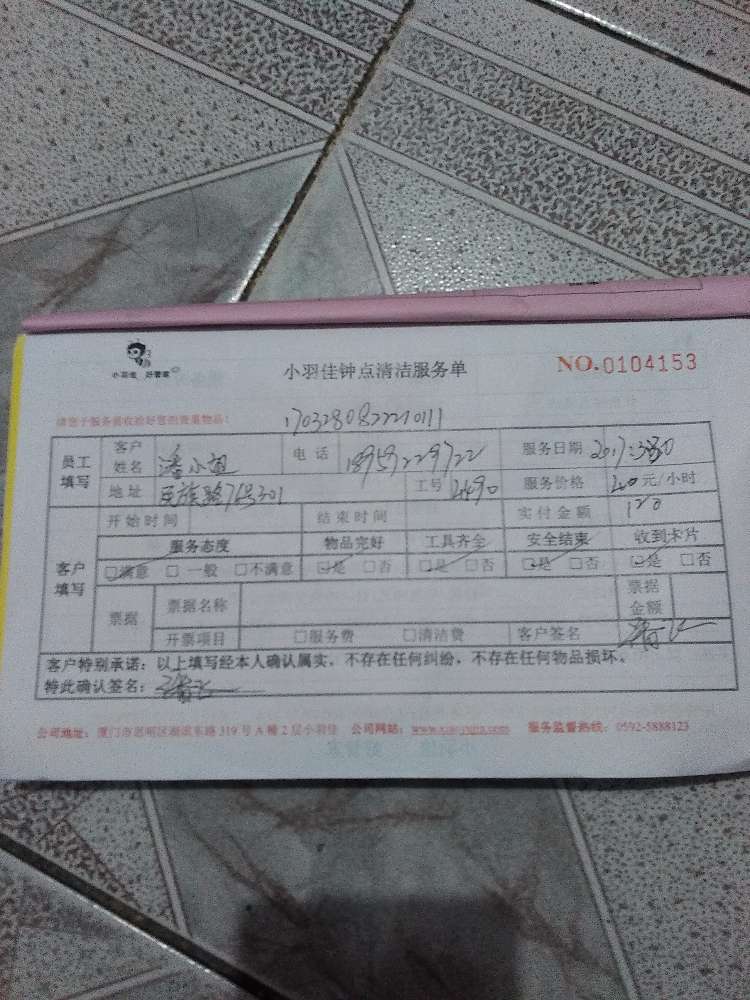 小羽佳 好管家
小羽佳钟点清洁服务单
NO.0104153
请您于服务前收捡好您的贵重物品:
170328082210111
员工填写 客户姓名 潘小姐 电话 18959229722 服务日期
地址 民族路76号301 工号 2490 服务价格 元/小时
客户填写 开始时间 结束时间 实付金额 120
服务态度 物品完好 工具齐全 安全结束 收到卡片
☑满意 □一般 □不满意 ☑是 □否 ☑是 □否 ☑是 □否 ☑是 □否
票据 票据名称 票据金额
开票项目 □服务费 □清洁费 客户签名
客户特别承诺：以上填写经本人确认属实，不存在任何纠纷，不存在任何物品损坏。
特此确认签名：
公司地址：厦门市思明区湖滨东路319号A幢2层小羽佳 公司网站： 服务监督热线：0592-5888123